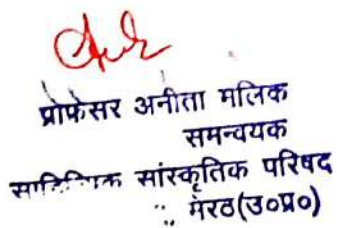 प्रोफेसर अनीता मलिक
समन्वयक
सांस्कृतिक परिषद
मेरठ(उ०प्र०)